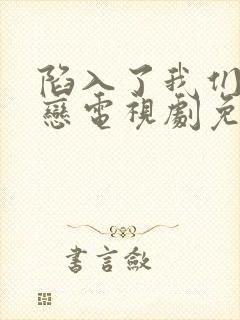 陷入了我们
戀電視劇免
書言敘